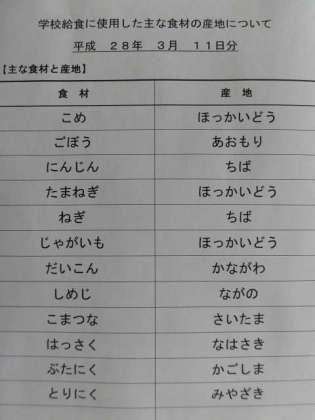 学校給食に使用した主な食材の産地について
平成 28年 3月 11日分
【主な食材と産地】
食 材 産 地
こめ ほっかいどう
ごぼう あおもり
にんじん ちば
たまねぎ ほっかいどう
ねぎ ちば
じゃがいも ほっかいどう
だいこん かながわ
しめじ ながの
こまつな さいたま
はっさく なはさき
ぶたにく かごしま
とりにく みやざき